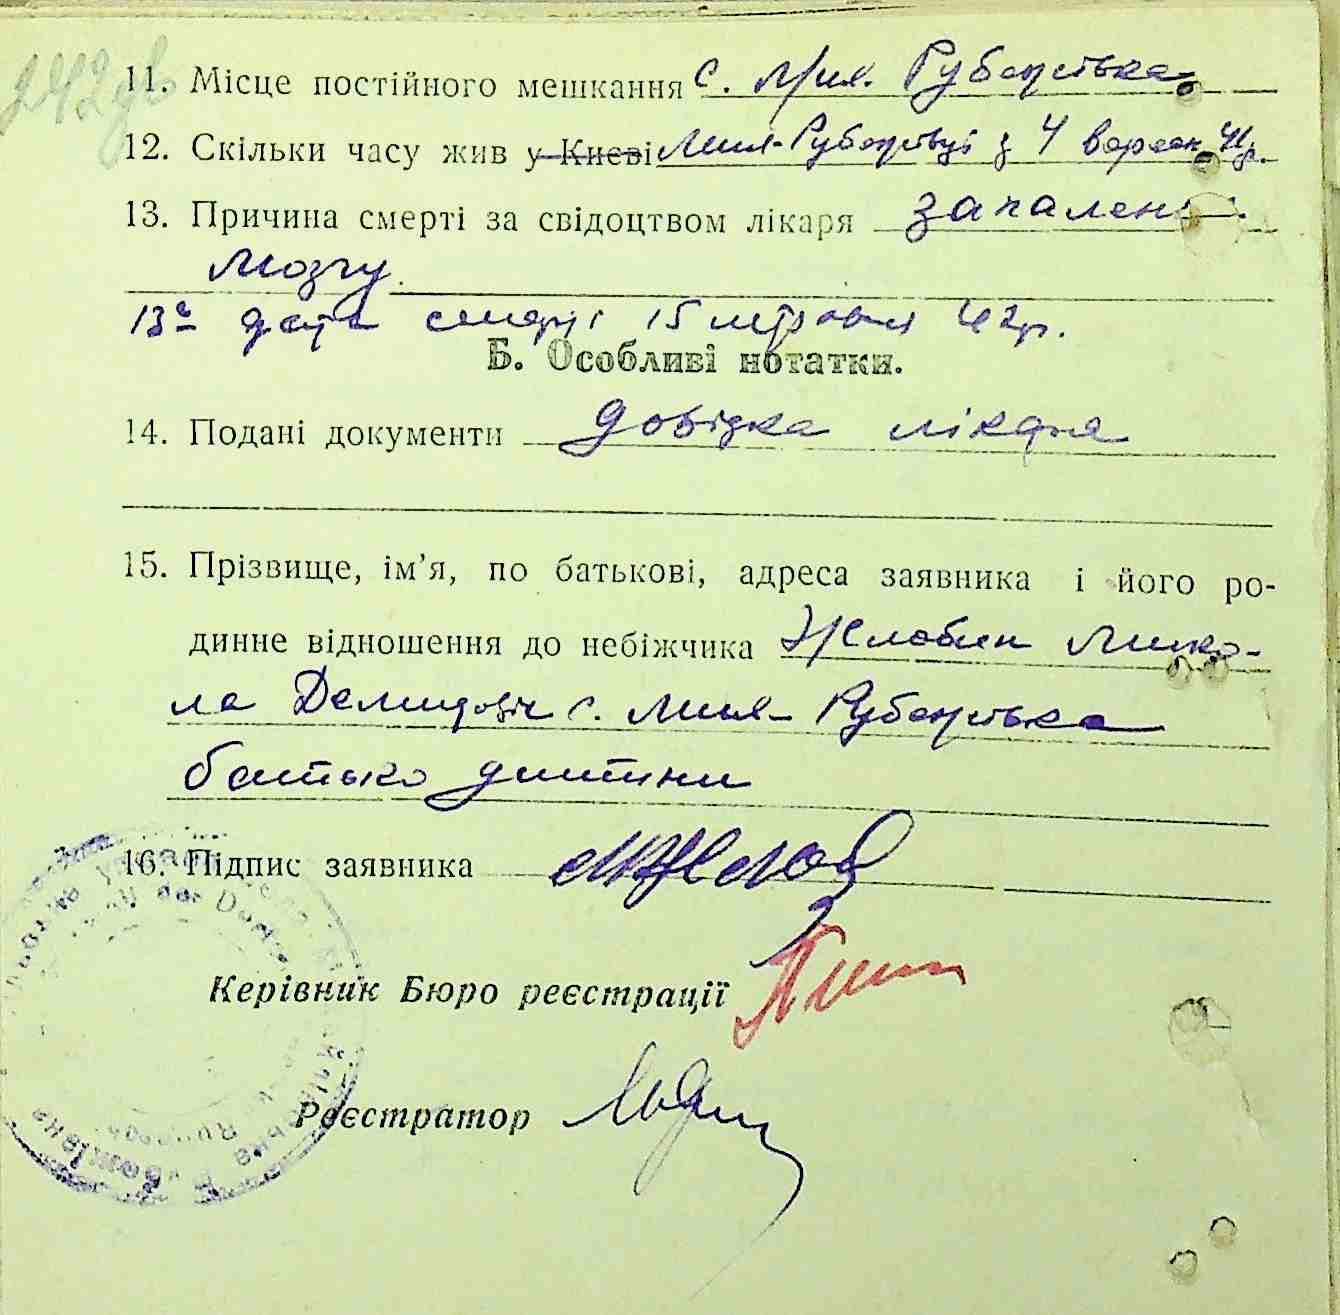 11. Місце постійного мешкання с. Мил. Рубанівка
12. Скільки часу жив у Києві Мил-Рубанівці з 4 вересн. 41р.
13. Причина смерті за свідоцтвом лікаря запалені
мозгу.
13а дата смерті 15 травня 42р.
Б. Особливі нотатки.
14. Подані документи довідка лікаря
15. Прізвище, ім’я, по батькові, адреса заявника і його ро-
динне відношення до небіжчика Жлобин Мико-
ла Демидовіч с. Рубанівка
батько дитини
16. Підпис заявника
Керівник Бюро реєстрації
Реєстратор